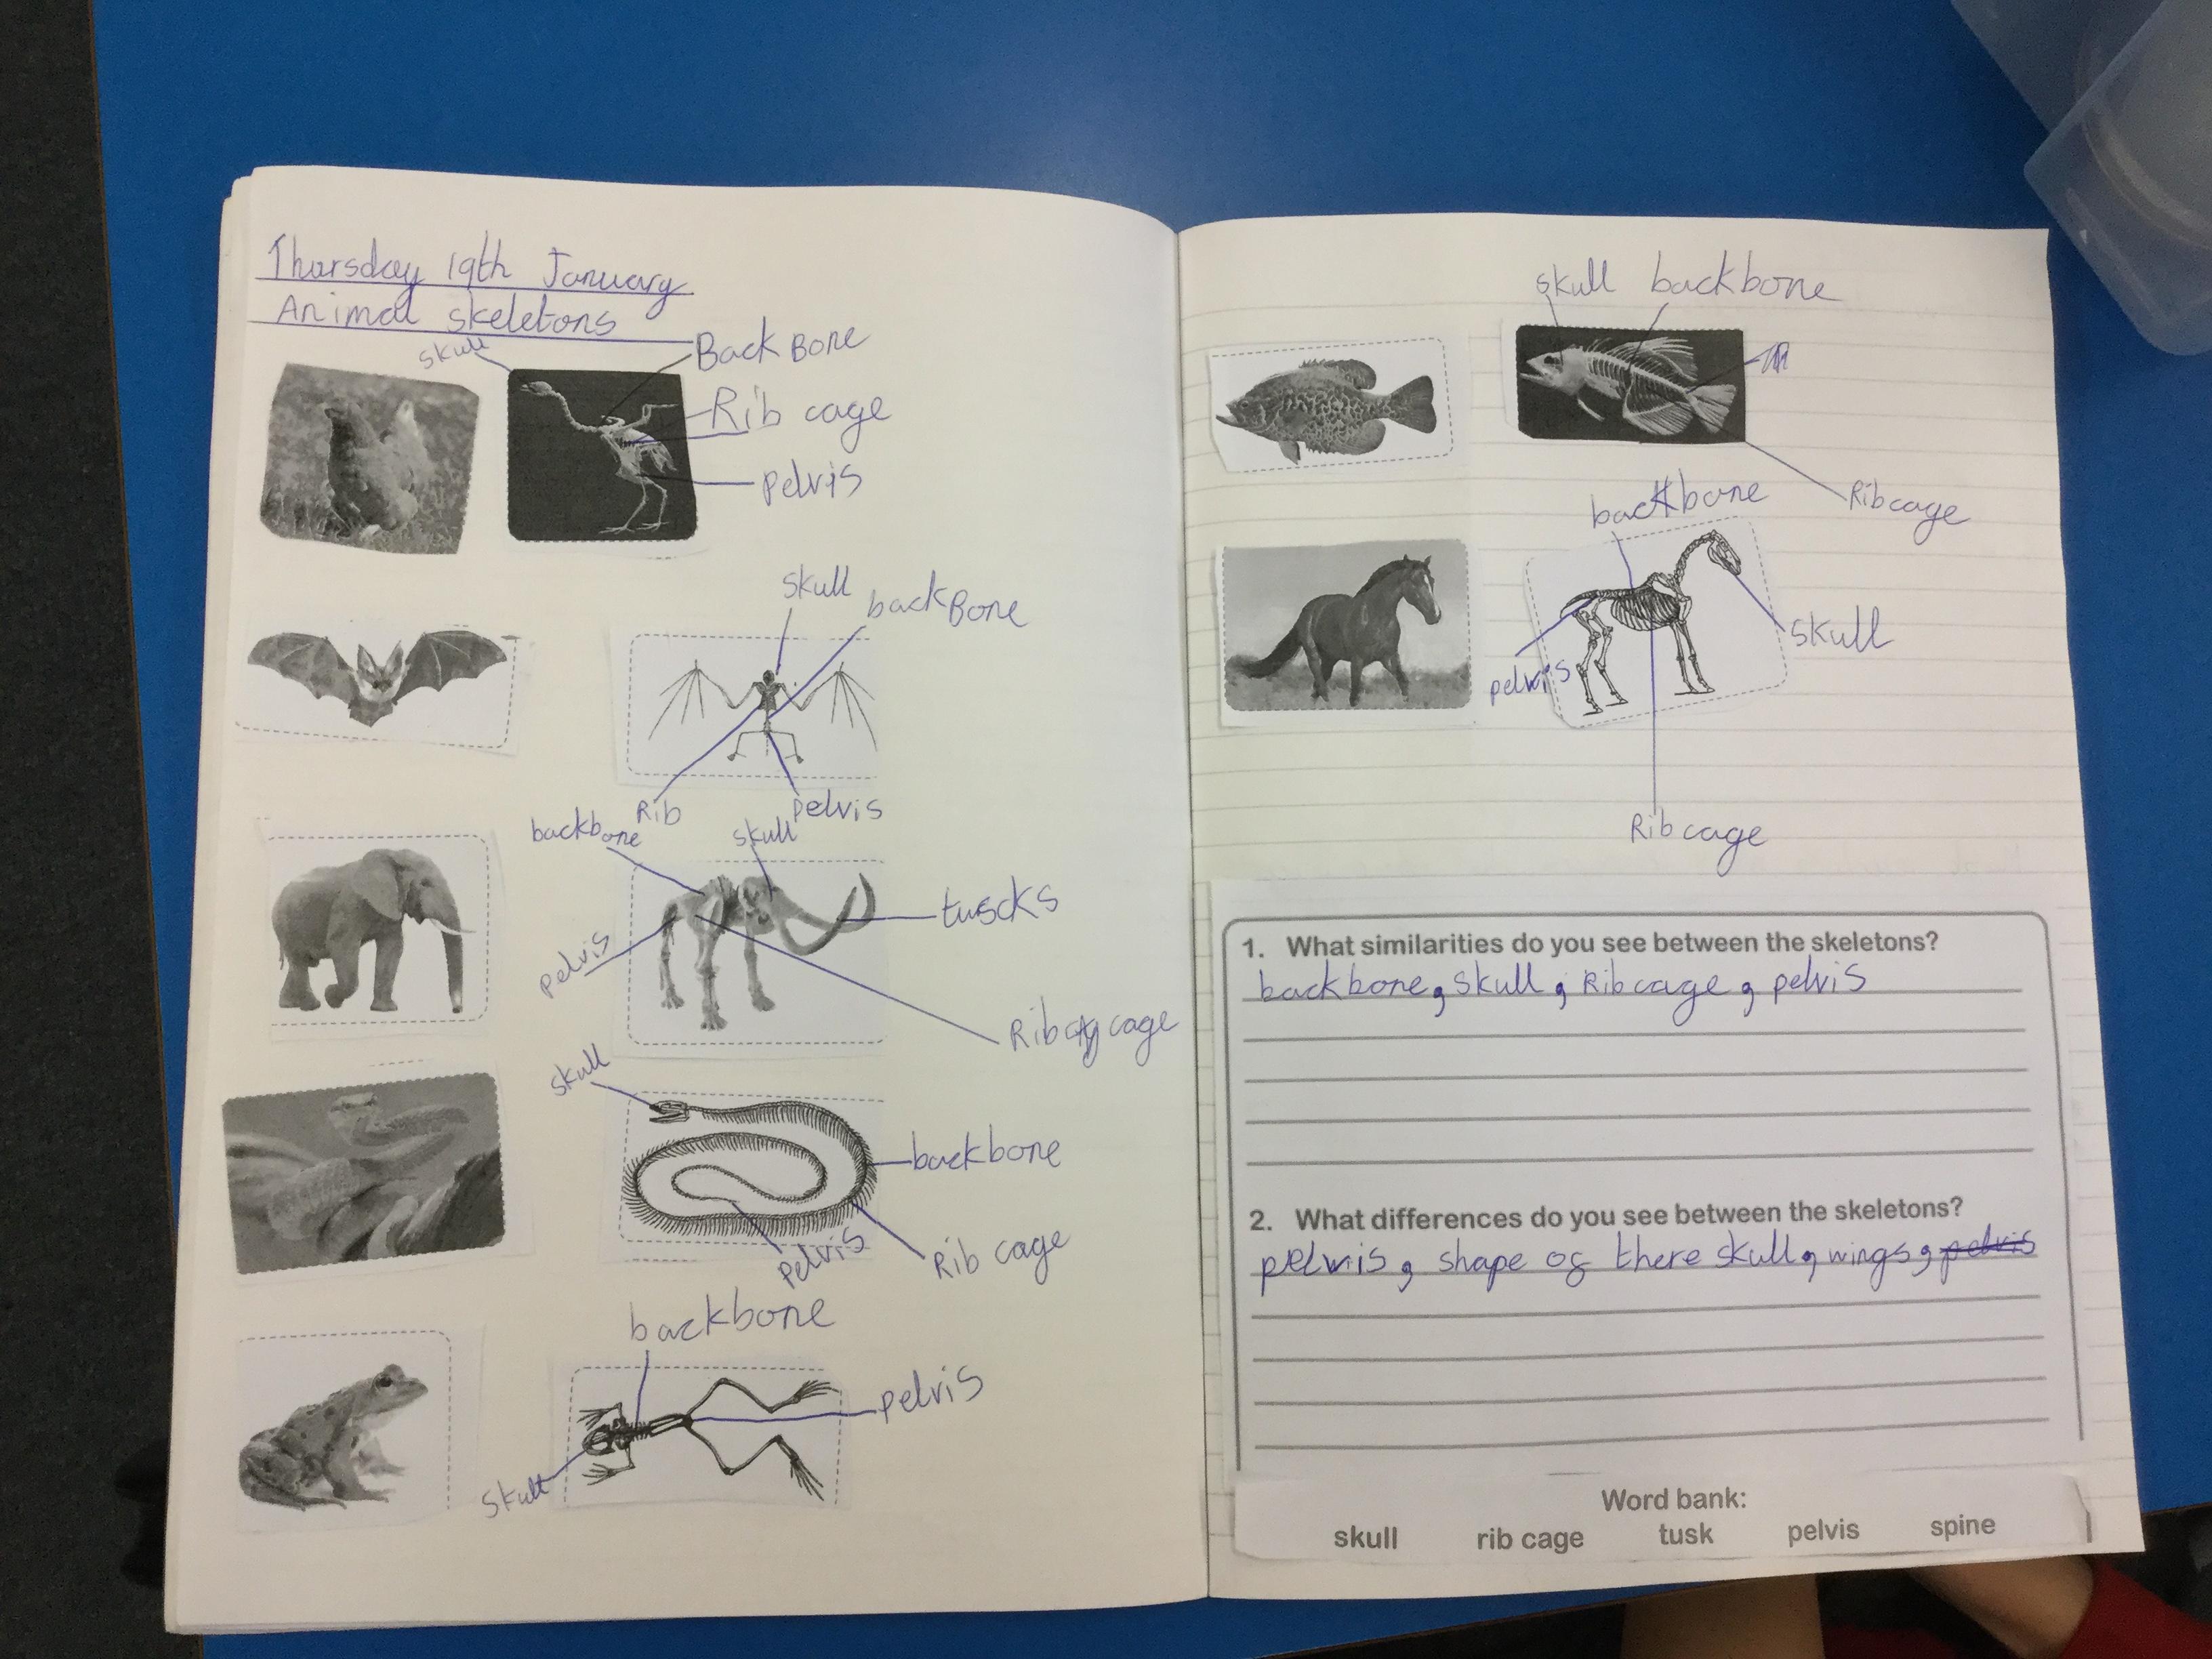 Thursday 19th January
Animal skeletons
skull
Back Bone
Rib cage
pelvis
skull
backBone
Rib
pelvis
backbone
skull
tuscks
pelvis
Rib cage
skull
backbone
pelvis
Rib cage
backbone
pelvis
skull
skull backbone
Rib cage
backbone
skull
pelvis
Rib cage
1. What similarities do you see between the skeletons?
backbone, skull, Rib cage, pelvis
2. What differences do you see between the skeletons?
pelvis, shape of there skull, wings, pelvis
Word bank:
skull rib cage tusk pelvis spine